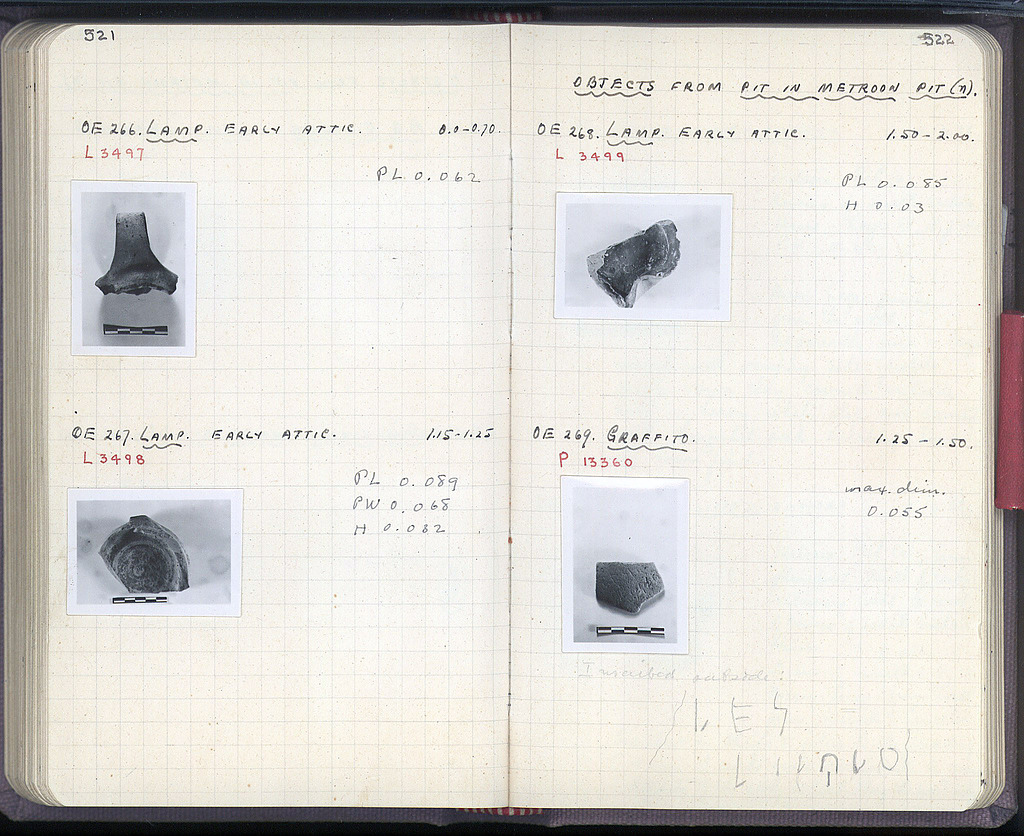 521
OE 266. LAMP. EARLY ATTIC. 0.0-0.70.
L 3497
PL 0.062
OE 267. LAMP. EARLY ATTIC. 1.15-1.25
L 3498
PL 0.089
PW 0.068
H 0.032
522
OBJECTS FROM PIT IN METROON PIT (N).
OE 268. LAMP. EARLY ATTIC. 1.50-2.00.
L 3499
PL 0.085
H 0.03
OE 269. GRAFFITO. 1.25-1.50.
P 13360
max. dim.
0.055
Inscribed outside: